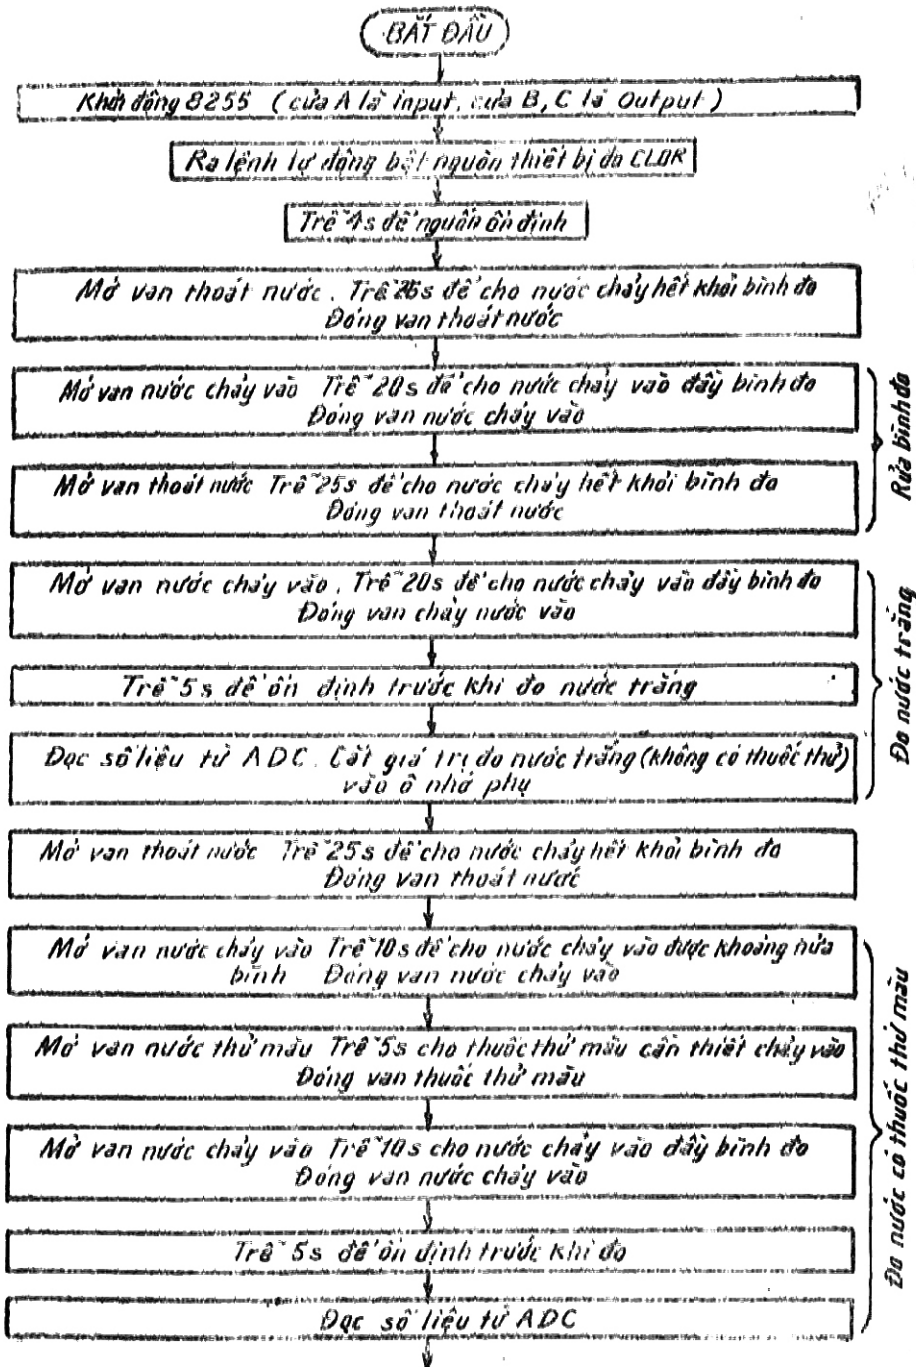 BẮT ĐẦU
Khởi động 8255 (cửa A là input, cửa B, C là Output)
Ra lệnh tự động bật nguồn thiết bị đo CLOR
Trễ 4s để nguồn ổn định
Mở van thoát nước. Trễ 25s để cho nước chảy hết khỏi bình đo
Đóng van thoát nước
Mở van nước chảy vào Trễ 20s để cho nước chảy vào đầy bình đo
Đóng van nước chảy vào
Mở van thoát nước Trễ 25s để cho nước chảy hết khỏi bình đo
Đóng van thoát nước
Rửa bình đo
Mở van nước chảy vào. Trễ 20s để cho nước chảy vào đầy bình đo
Đóng van chảy nước vào
Trễ 5s để ổn định trước khi đo nước trắng
Đọc số liệu từ ADC. Cất giá trị đo nước trắng (không có thuốc thử)
vào ô nhớ phụ
Đo nước trắng
Mở van thoát nước Trễ 25s để cho nước chảy hết khỏi bình đo
Đóng van thoát nước
Mở van nước chảy vào Trễ 10s để cho nước chảy vào được khoảng nửa
bình Đóng van nước chảy vào
Mở van nước thử màu Trễ 5s cho thuốc thử màu cần thiết chảy vào
Đóng van thuốc thử màu
Mở van nước chảy vào Trễ 10s cho nước chảy vào đầy bình đo
Đóng van nước chảy vào
Trễ 5s để ổn định trước khi đo
Đọc số liệu từ ADC
Đo nước có thuốc thử màu